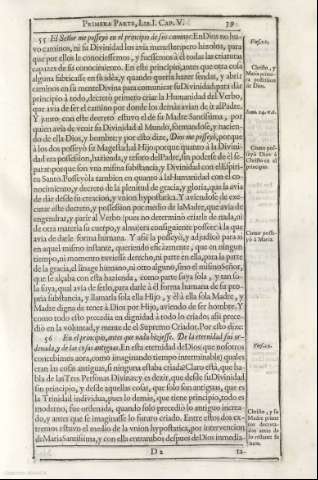 PRIMERA PARTE, LIB. I. CAP. V. 39
55 El Señor me posseyò en el principio de sus caminos: En Dios no hu-
vo caminos, ni su Divinidad los avia menester; pero hizolos, para
que por ellos le conociessemos, y fuessemos à èl todas las criaturas
capazes de su conocimiento. En este principio, antes que otra cosa
alguna fabricasse en su idèa, y quando queria hazer sendas, y abrir
caminos en su mente Divina para comunicar su Divinidad; para dàr
principio à todo, decretò primero criar la Humanidad del Verbo,
que avia de ser el camino por donde los demàs avian de ir al Padre.
Y junto con este decreto estuvo el de su Madre Santissima, por
quien avia de venir su Divinidad al Mundo, formandose, y nacien-
do de ella Dios, y hombre; y por esso dize, Dios me posseyò, porque
à los dos posseyò su Magestad: al Hijo porque quanto à la Divini-
dad era possession, hazienda, y tesoro del Padre, sin poderse de èl se-
parar; porque son vna misma substancia, y Divinidad con el Espiri-
tu Santo. Posseyòla tambien en quanto à la Humanidad con el co-
nocimiento, y decreto de la plenitud de gracia, y gloria, que la avia
de dàr desde su creacion, y vnion hypostatica. Y aviendose de exe-
cutar este decreto, y possession por medio de la Madre, que avia de
engendrar, y parir al Verbo (pues no determinò criarle de nada, ni
de otra materia su cuerpo, y alma) era consiguiente posseer à la que
avia de darle forma humana. Y assi la posseyò, y adjudicò para sì
en aquel mismo instante, queriendo eficazmente, que en ningun
tiempo, ni momento tuviesse derecho, ni parte en ella, para la parte
de la gracia, el linage humano, ni otro alguno, sino el mismo Señor,
que se alçaba con esta hazienda, como parte suya sola, y tan so-
la suya, qual avia de serlo, para darle à èl forma humana de su pro-
pria substancia, y llamarla sola ella Hijo, y èl à ella sola Madre, y
Madre digna de tener à Dios por Hijo, aviendo de ser hombre. Y
como todo esto precedia en dignidad à todo lo criado, assi prece-
diò en la voluntad, y mente de el Supremo Criador. Por esto dize:
56 En el principio, antes que nada hiziesse. De la eternidad fui or-
denada, y de las cosas antiguas. En esta eternidad de Dios (que nosotros
concebimos aora, como imaginando tiempo interminable) quales
eran las cosas antiguas, si ninguna estaba criada? Claro està, que ha-
bla de las Tres Personas Divinas; y es dezir, que desde su Divinidad
sin principio, y desde aquellas cosas, que solo son antiguas, que es
la Trinidad individua, pues lo demàs, que tiene principio, todo es
moderno, fue ordenada, quando solo precediò lo antiguo increa-
do, y antes que se imaginasse lo futuro criado. Entre estos dos ex-
tremos estuvo el medio de la vnion hypostatica, por intervencion
de Maria Santissima, y con ella entrambos despues de Dios inmedia-
D 2 ta-
Christo, y
Maria prime-
ra possessiõ
de Dios.
Como posse-
yò Dios à
Christo en el
principio.
Como posse-
yò à Maria.
Christo, y su
Madre prime-
ro decreta-
dos antes de
lo restante de